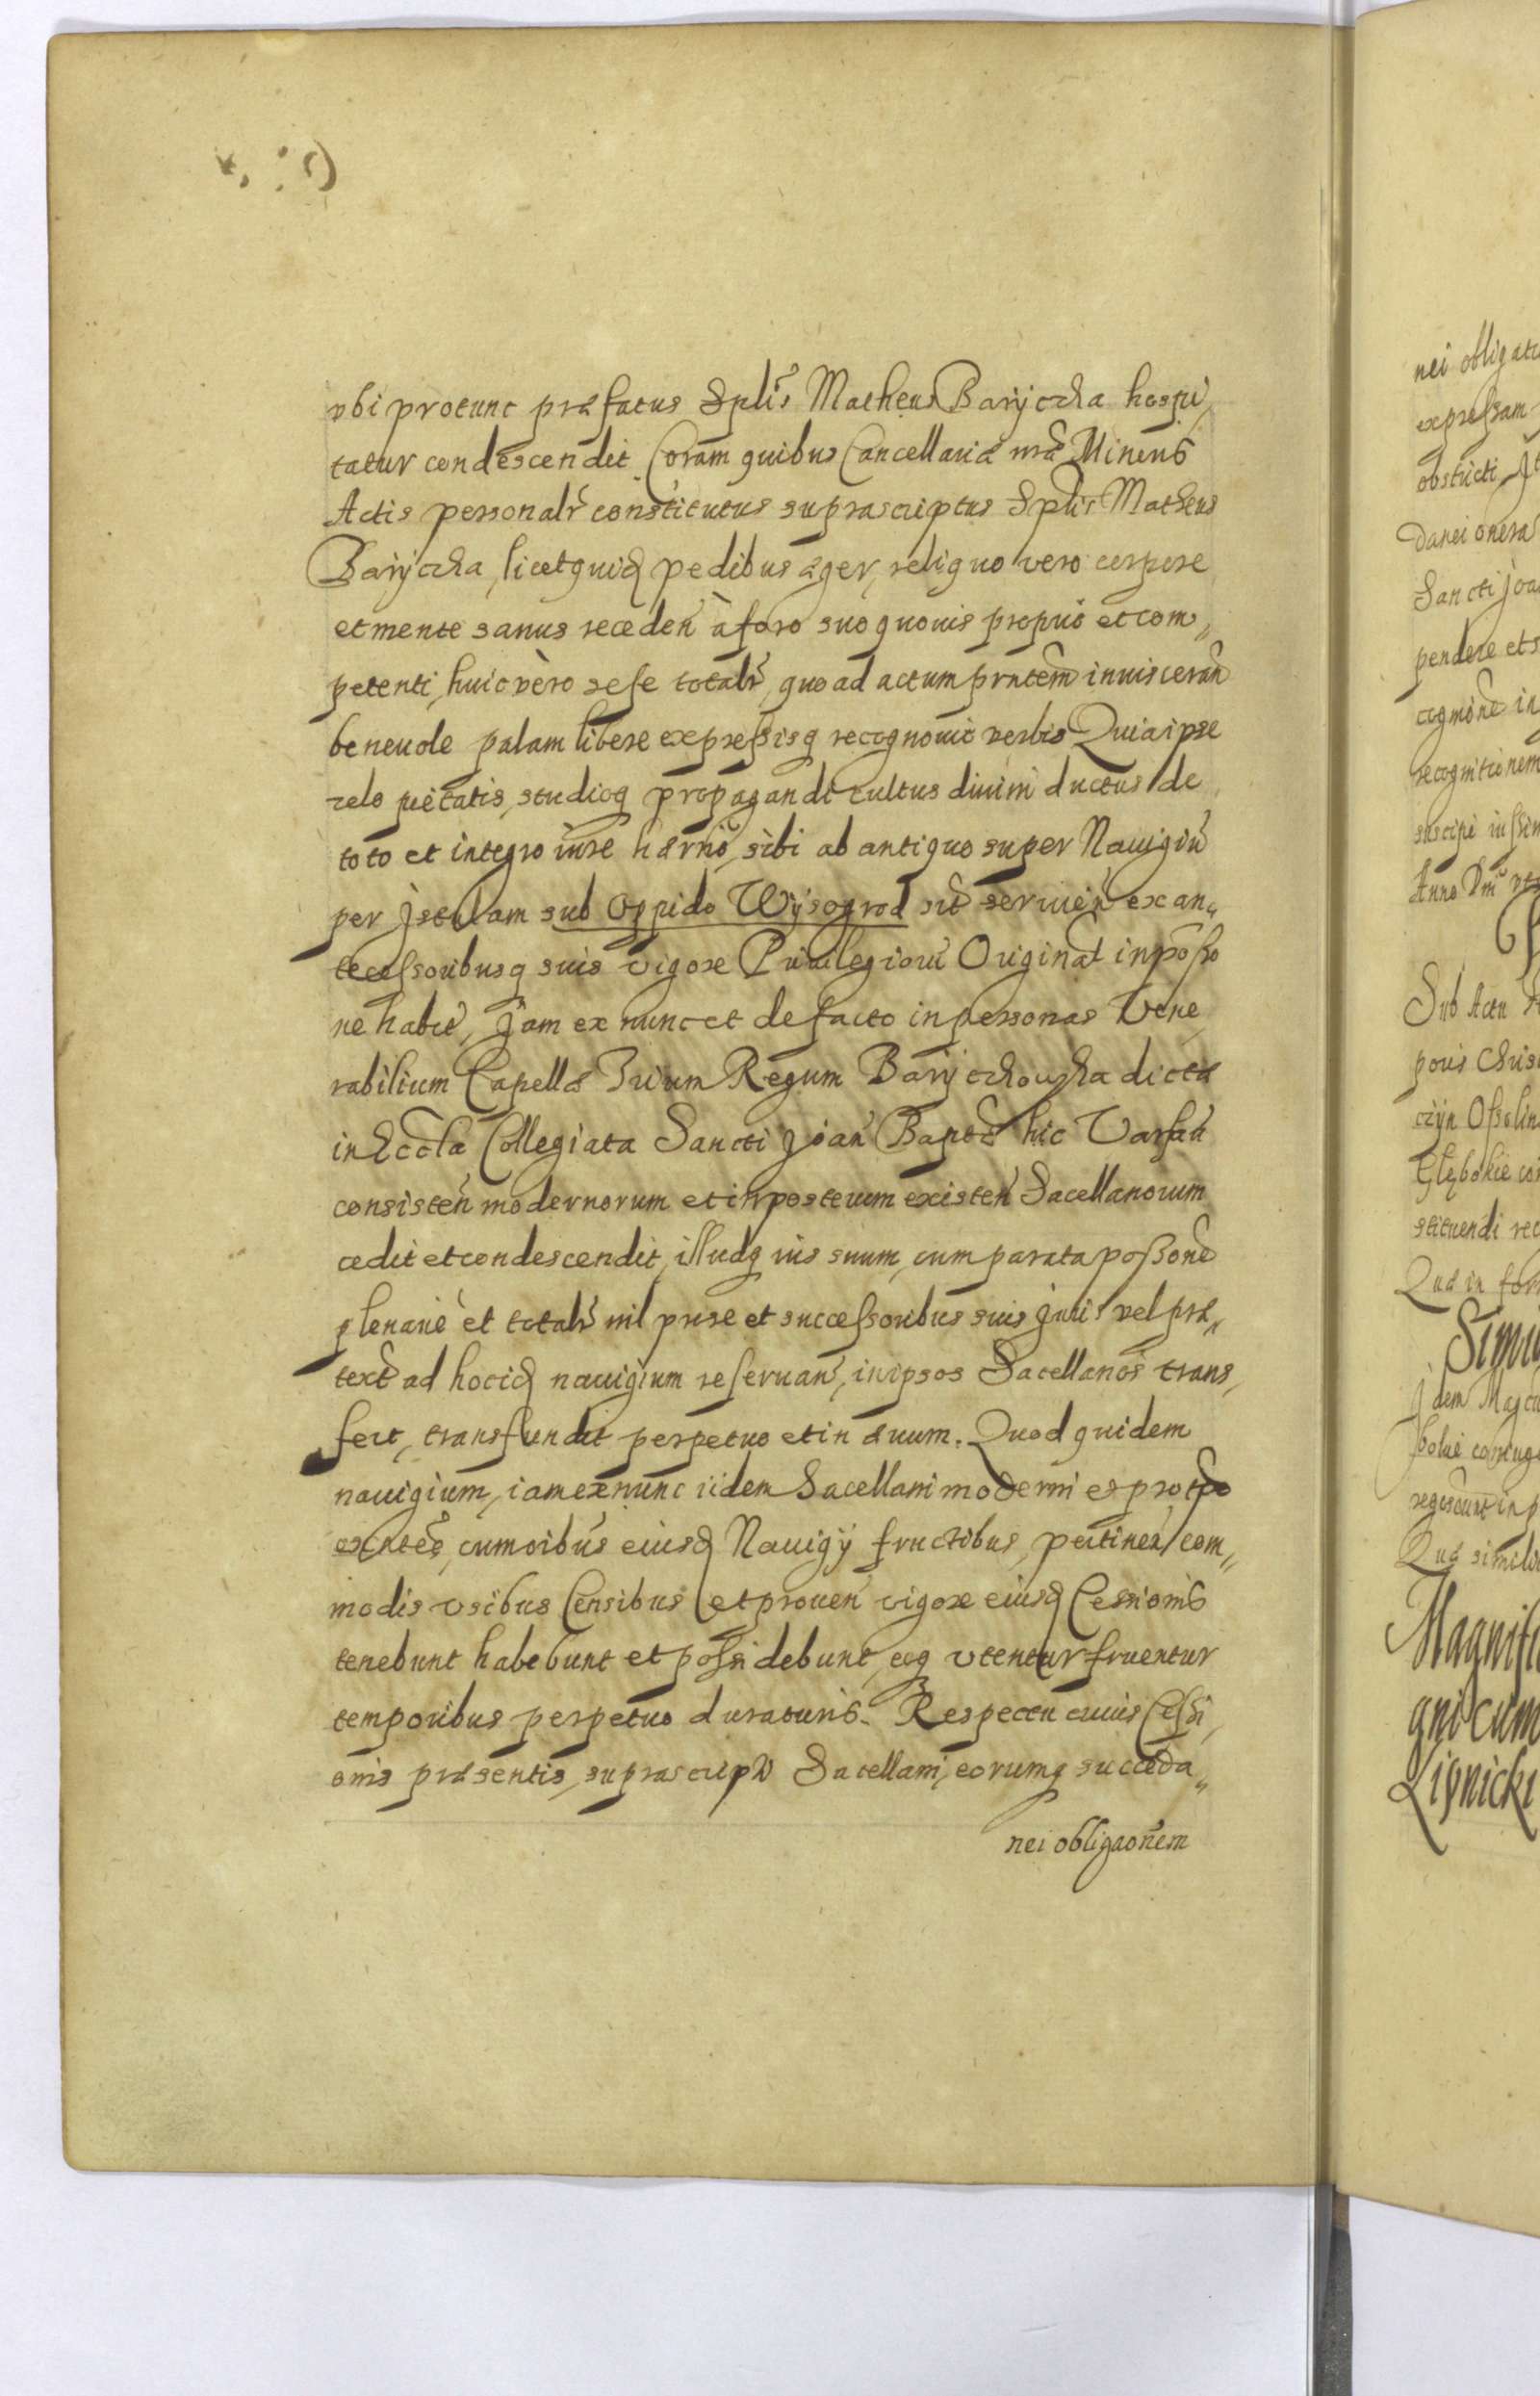 vbi protunc præfatus Splis Matheus Baryczka hospi,
tatur condescendit Coram quibus Cancellariæ nræ Minens
Actis personalr constitutus suprascriptus Splis Matheus
Baryczka, licet quid pedibus æger, reliquo vero corpore
et mente sanus receden à foro suo quouis proprio et com,,
petenti, huic vèro sese totalr, quo ad actum prntem inuisceran
beneuole palam libere expressisq recognouit verbis Quia ipse
zelo pietatis, studioq propagandi cultus diuini ductus de
toto et integro iure hærrio, sibi ab antiquo super Nauigiu
per Jstulam sub Oppido Wysogrod sit seruien ex an,,
tecessoribusq suis vigore Priuilegioru Original in posso
ne habit, Jam ex nunc et de facto in personas Vene,
rabilium Capellæ Trium Regum Baryczkowska dictæ
in Eccla Collegiata Sancti Joan Baptæ hic Varsau
consisten modernorum et in posterum existen Sacellanorum
cedit et condescendit, illudq ius suum, cum parata possone
plenariè et totalr nil prire et successoribus suis juris vel præ,,
text ad hocid nauigium reseruan, in ipsos Sacellanos trans,
fert, transfundit perpetuo et in æuum. Quod quidem
nauigium, iam ex nunc iidem Sacellani moderni et pro tpo
exntes, cum oibus eiusd Nauigy fructibus, pertinen com,,
modis vsibus Censibus et prouen vigore eiusd Cessionis
tenebunt habebunt et possidebunt, eoq vtentur fruentur
temporibus perpetuo duraturis. Respectu cuius Cessi,
onis præsentis, suprascripti Sacellani, eorumq succeda,,
nei obligaonem
nei obligat
expressam
obstricti
danei onera
Sancti Joa
pendere et s
recognitionem
suscipi iussim
Sub Actu
poris Chris
czyn Ossolin
Głębokie
stituendi rec
Qua in for
Magnifi
gnicum
Lignicki